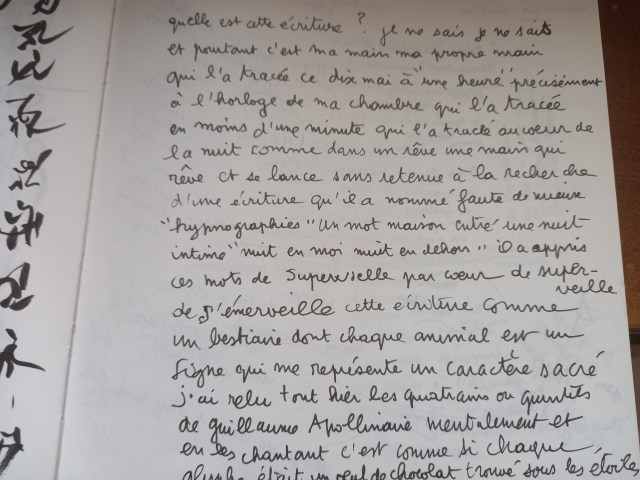 quelle est cette écriture ? je ne sais je ne sais
et pourtant c'est ma main ma propre main
qui l'a tracée ce dix mai à "une heure" précisément
à l'horloge de ma chambre qui l'a tracée
en moins d'une minute qui l'a tracée au coeur de
la nuit comme dans un rêve une main qui
rêve et se lance sans retenue à la recherche
d'une écriture qu'il a nommé faute de mieux
"hypnographies" Un mot maison une nuit
intime "nuit en moi nuit en dehors" il a appris
ces mots de Supervielle par coeur de super-
veille
de s'émerveille cette écriture comme
un bestiaire dont chaque animal est un
signe qui me représente un caractère sacré
j'ai relu tout hier les quatrains ou quintils
de guillaume Apollinaire mentalement et
en les chantant c'est comme si chaque
glyphe était un oeuf de chocolat trouvé sous les étoiles